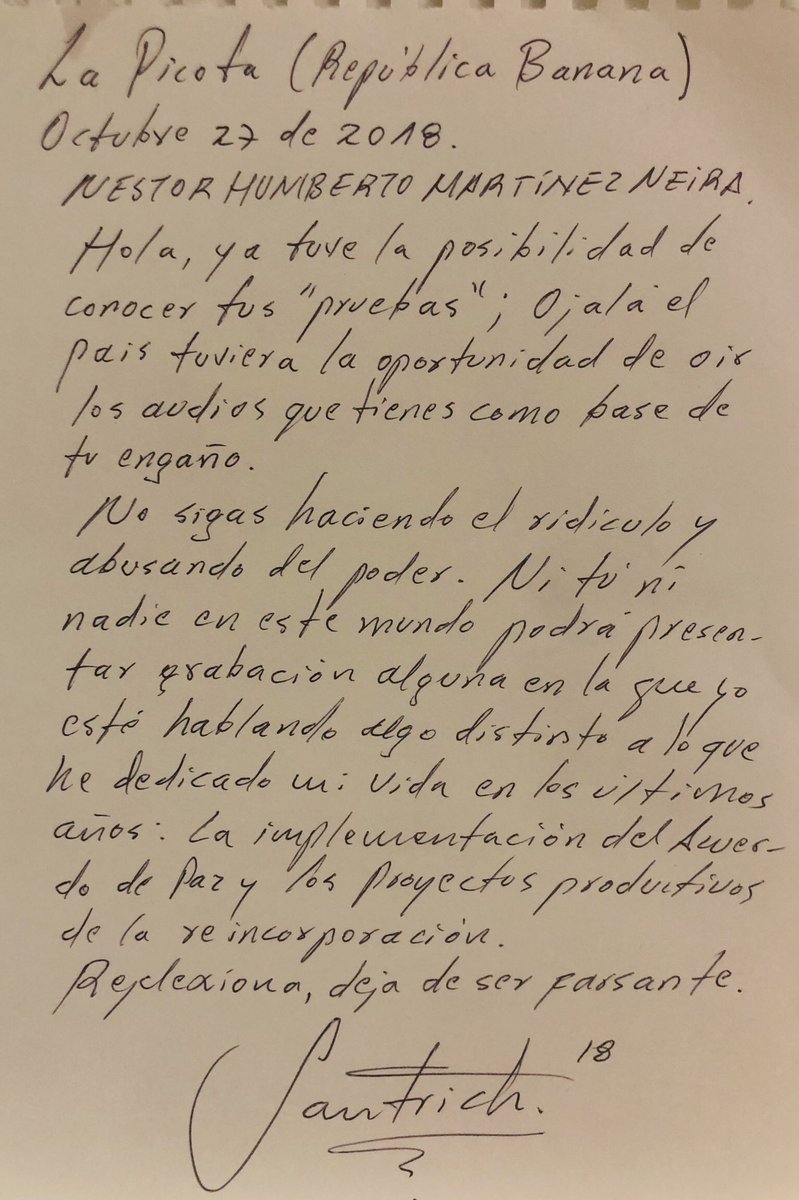 La Picota (República Banana)
Octubre 27 de 2018.
NESTOR HUMBERTO MARTÍNEZ NEIRA.
Hola, ya tuve la posibilidad de
conocer tus "pruebas"; Ojalá el
pais tuviera la oportunidad de oir
los audios que tienes como base de
tu engaño.
No sigas haciendo el ridiculo y
abusando del poder. Ni tú ni
nadie en este mundo podrá presen-
tar grabación alguna en la que yo
esté hablando algo distinto a lo que
he dedicado mi vida en los últimos
años: La implementación del Acuer-
do de Paz y los proyectos productivos
de la reincorporación.
Reflexiona, deja de ser farsante.
Santrich. 18